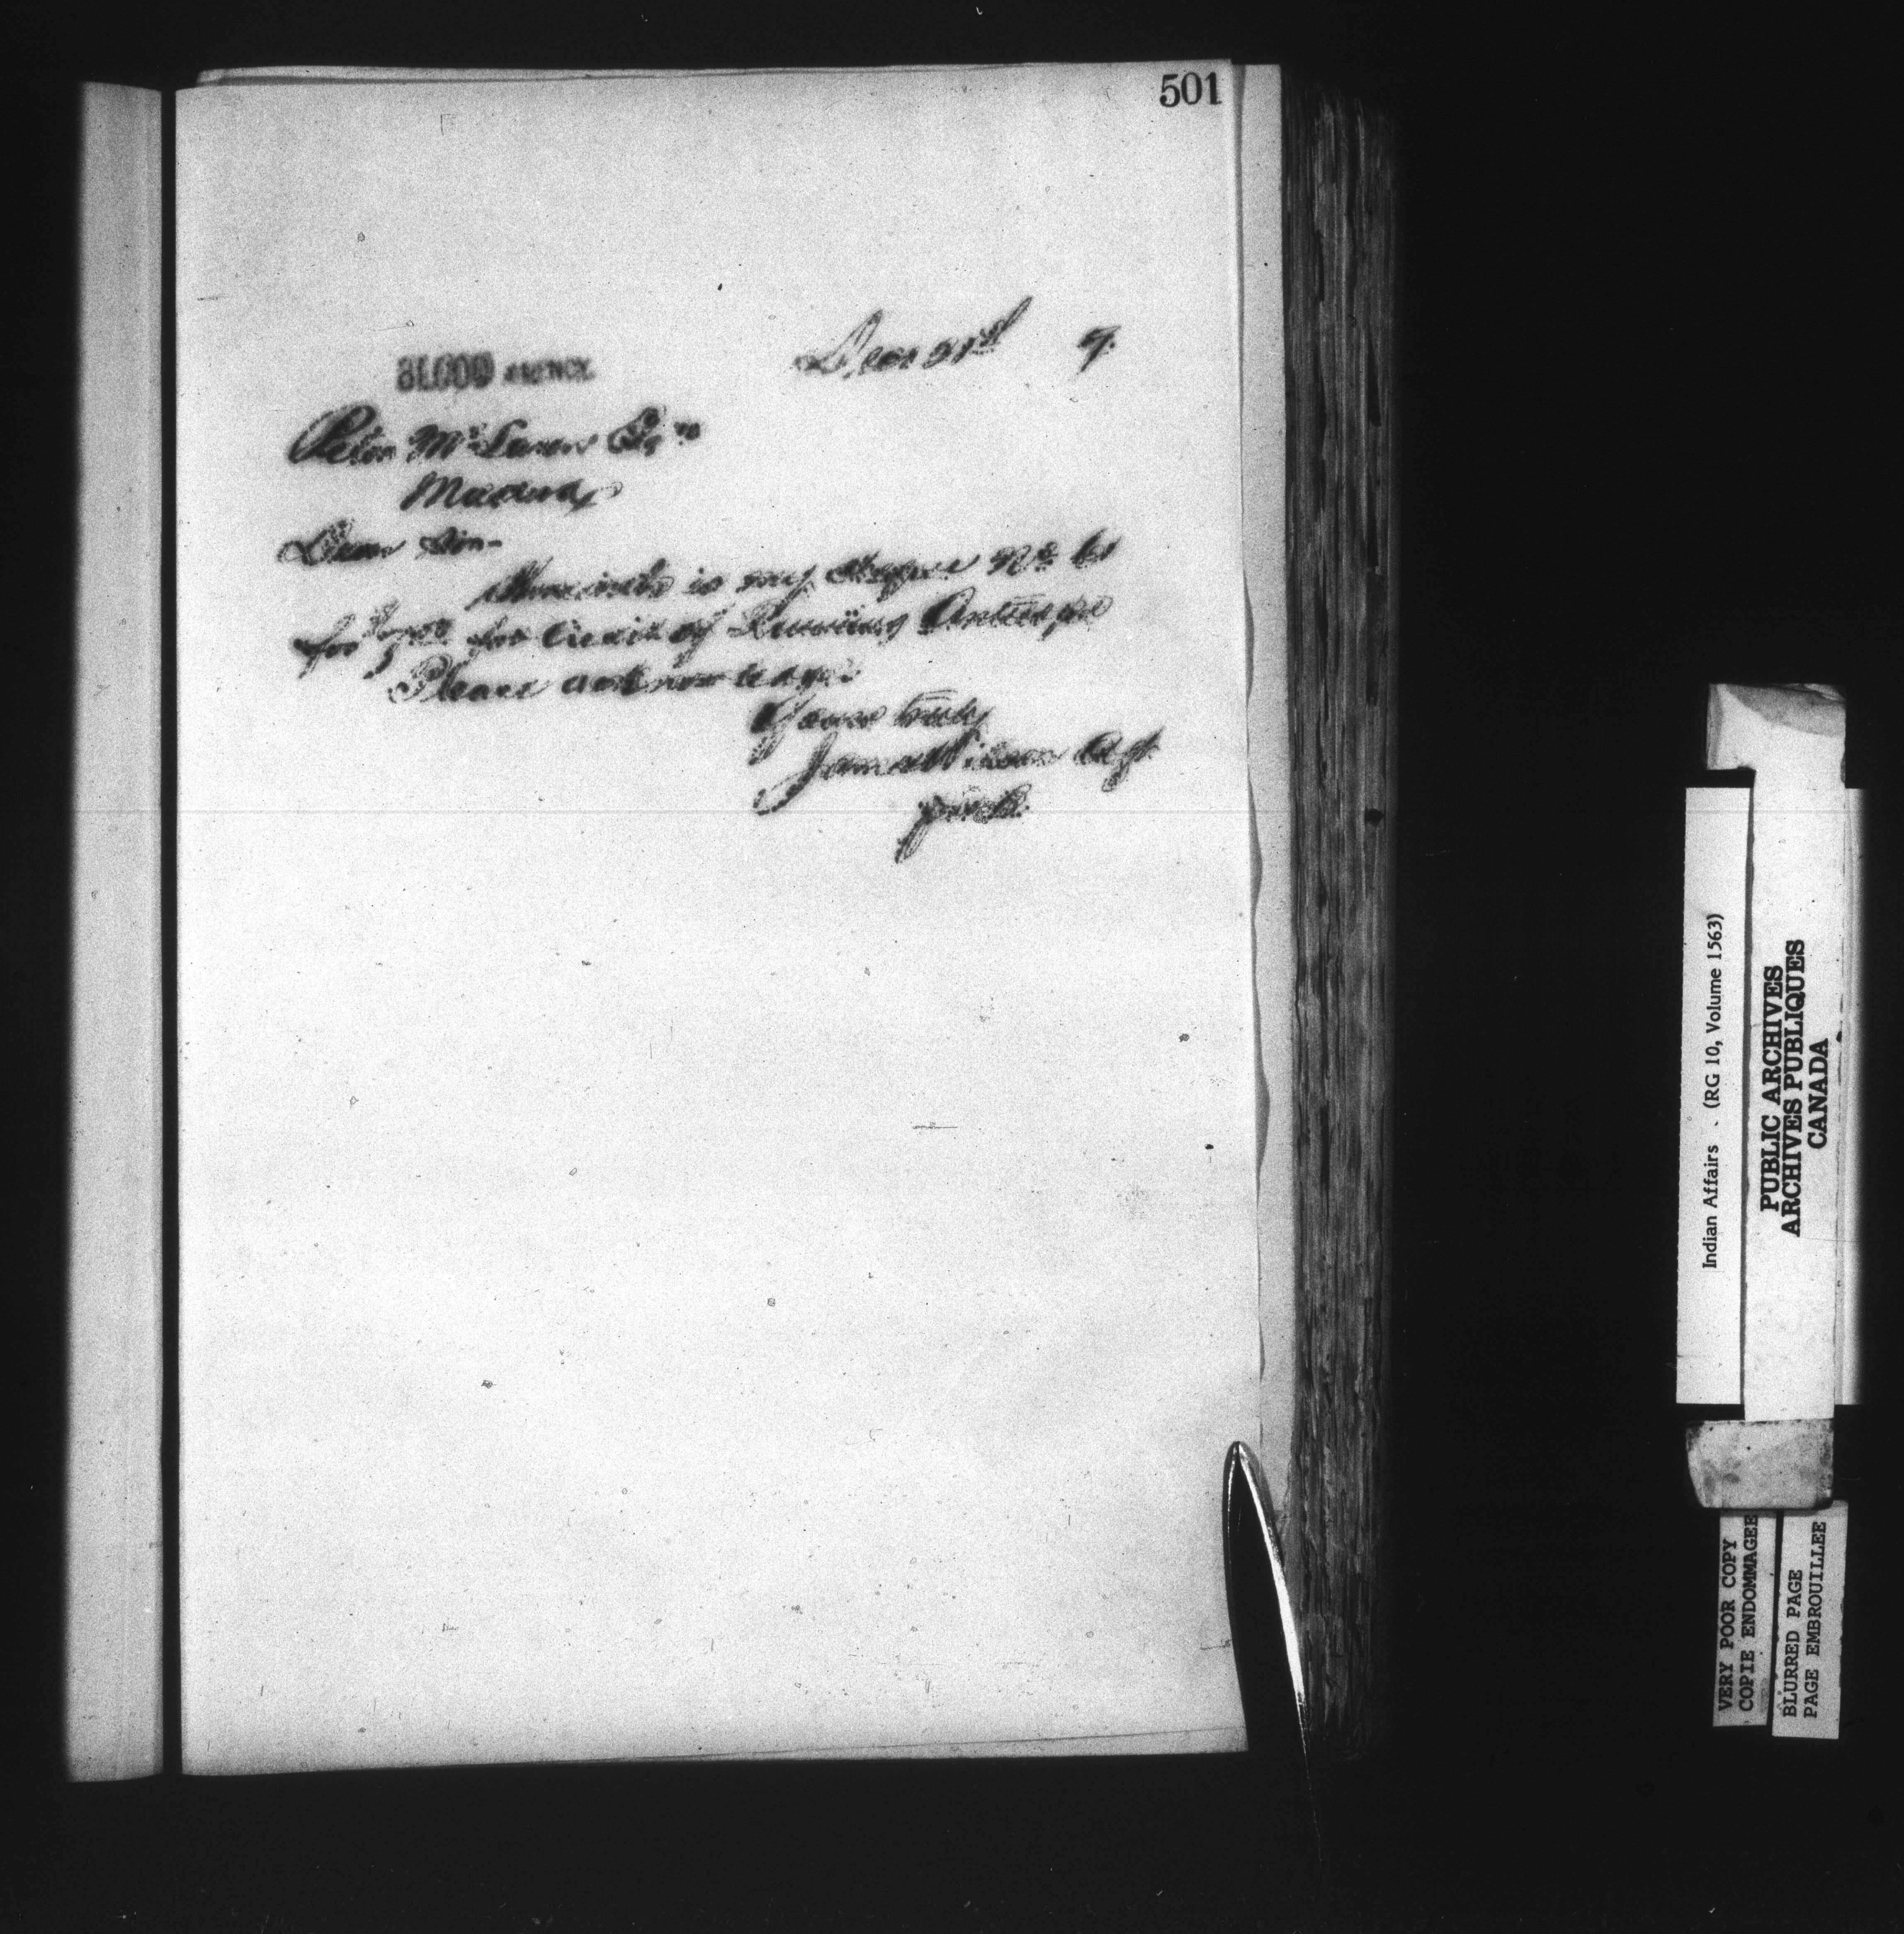 501
BLOOD AGENCY.
Dec 31st 7.
Peter McLaren Esqre
Macleod,
Dear Sir-
Herewith is my cheque No 61
for for Credit of Running Antelope
Please acknowledge
Yours truly
James Wilson Agt
Indian Affairs . (RG 10, Volume 1563)
PUBLIC ARCHIVES
ARCHIVES PUBLIQUES
CANADA
VERY POOR COPY
COPIE ENDOMMAGEE
BLURRED PAGE
PAGE EMBROUILLEE